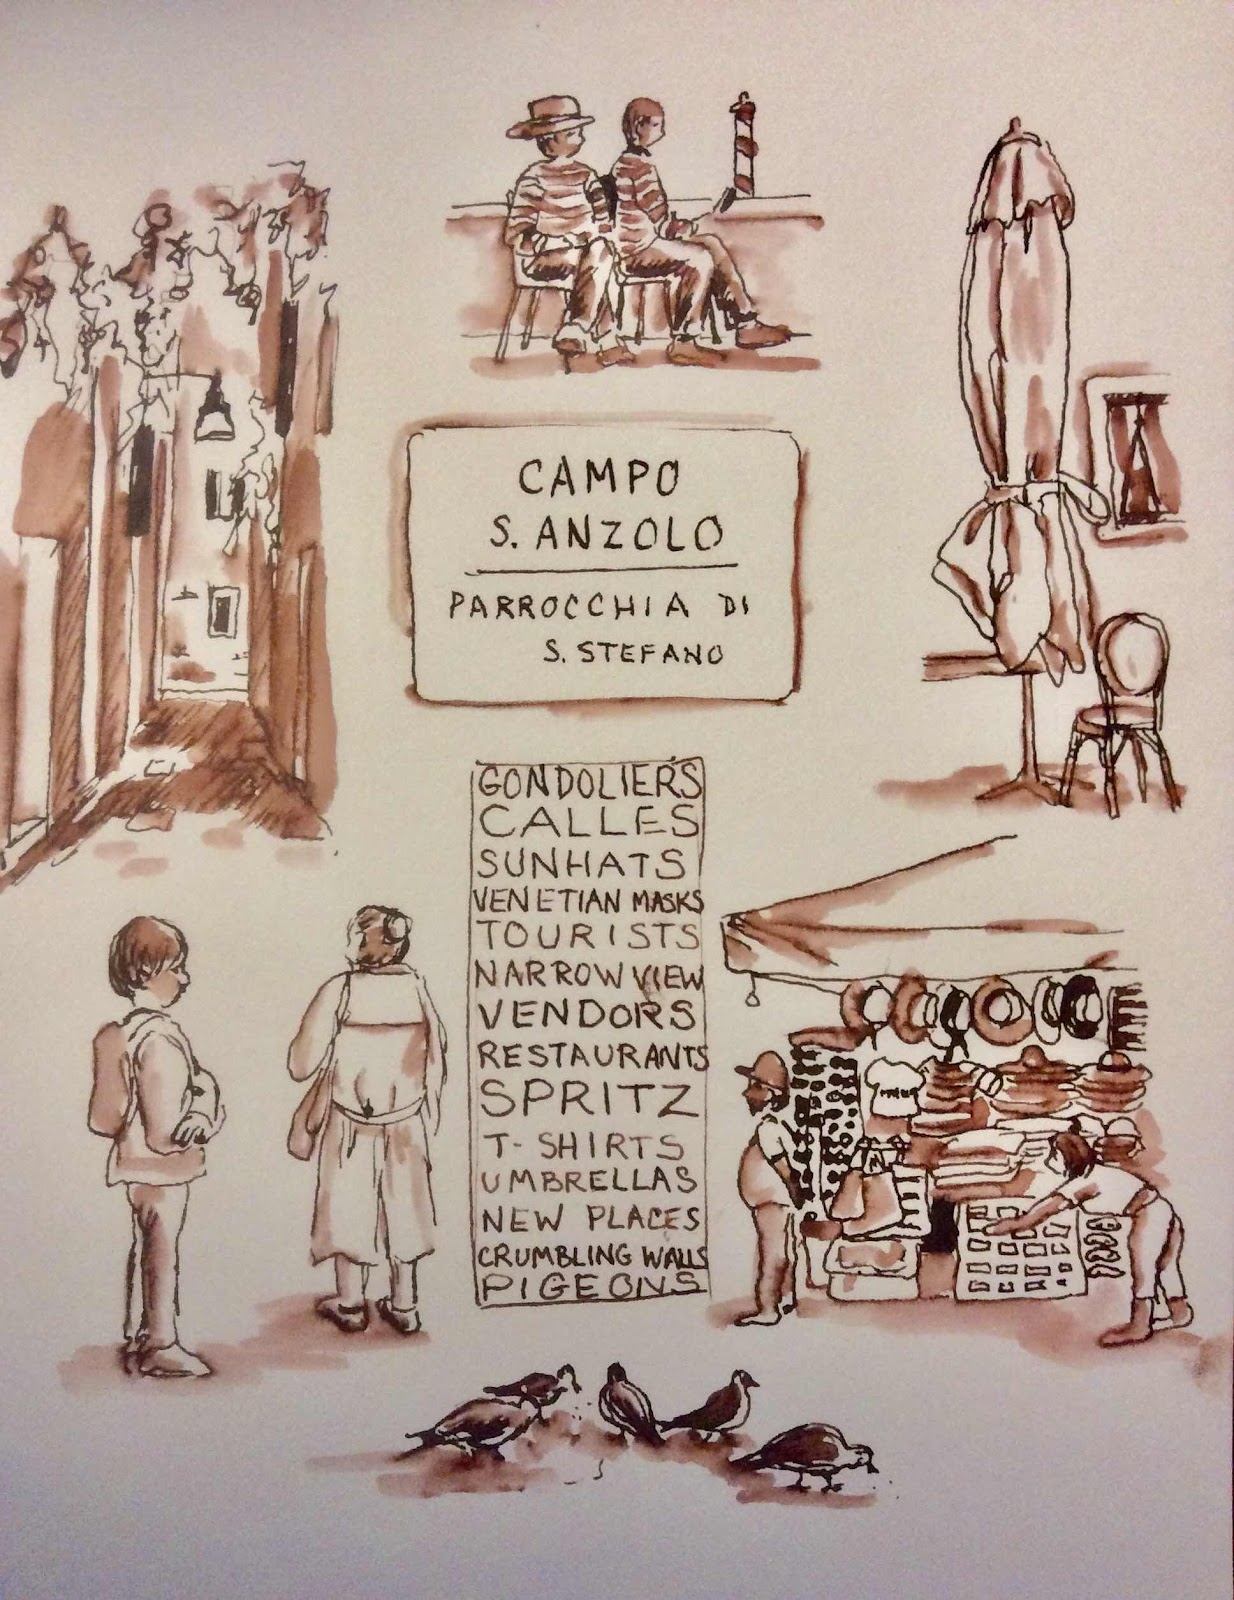 CAMPO
S. ANZOLO
PARROCCHIA DI
S. STEFANO
GONDOLIERS
CALLES
SUNHATS
VENETIAN MASKS
TOURISTS
NARROW VIEW
VENDORS
RESTAURANTS
SPRITZ
T-SHIRTS
UMBRELLAS
NEW PLACES
CRUMBLING WALLS
PIGEONS